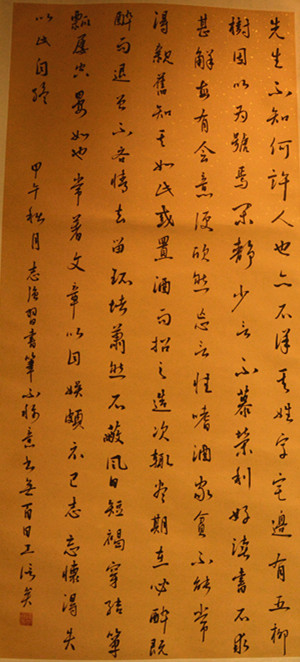 先生不知何許人也亦不詳其姓字宅邊有五柳
樹因以為號焉閑靜少言不慕榮利好讀書不求
甚解每有會意便欣然忘言性嗜酒家貧不能常
得親舊知其如此或置酒而招之造次輒盡期在必醉既
醉而退曾不吝情去留環堵蕭然不蔽風日短褐穿結簞
瓢屢空晏如也常著文章以自娛頗示己志忘懷得失
以此自終
甲午秋月志習書筆不意無百日工